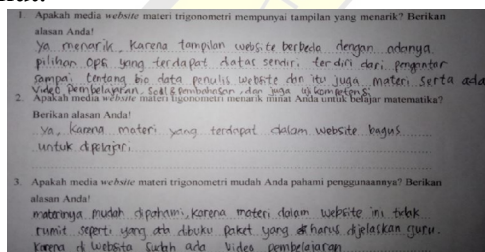 1. Apakah media website materi trigonometri mempunyai tampilan yang menarik? Berikan
alasan Anda!
Ya menarik, karena tampilan website berbeda dengan adanya
pilihan opsi yang terdapat datar sendiri, terdiri dari pengantar
sampai tentang bio data penulis website dan itu juga materi serta ada
Video pembelajaran, Soal & pembahasan, dan juga uji kompetensi
2. Apakah media website materi trigonometri menarik minat Anda untuk belajar matematika?
Berikan alasan Anda!
Ya, karena materi yang terdapat dalam website bagus
untuk dipelajari
3. Apakah media website materi trigonometri mudah Anda pahami penggunaannya? Berikan
alasan Anda!
materinya mudah dipahami, karena materi dalam website ini tidak
rumit seperti yang ada dibuku paket yang harus dijelaskan guru.
Karena di website sudah ada video pembelajaran